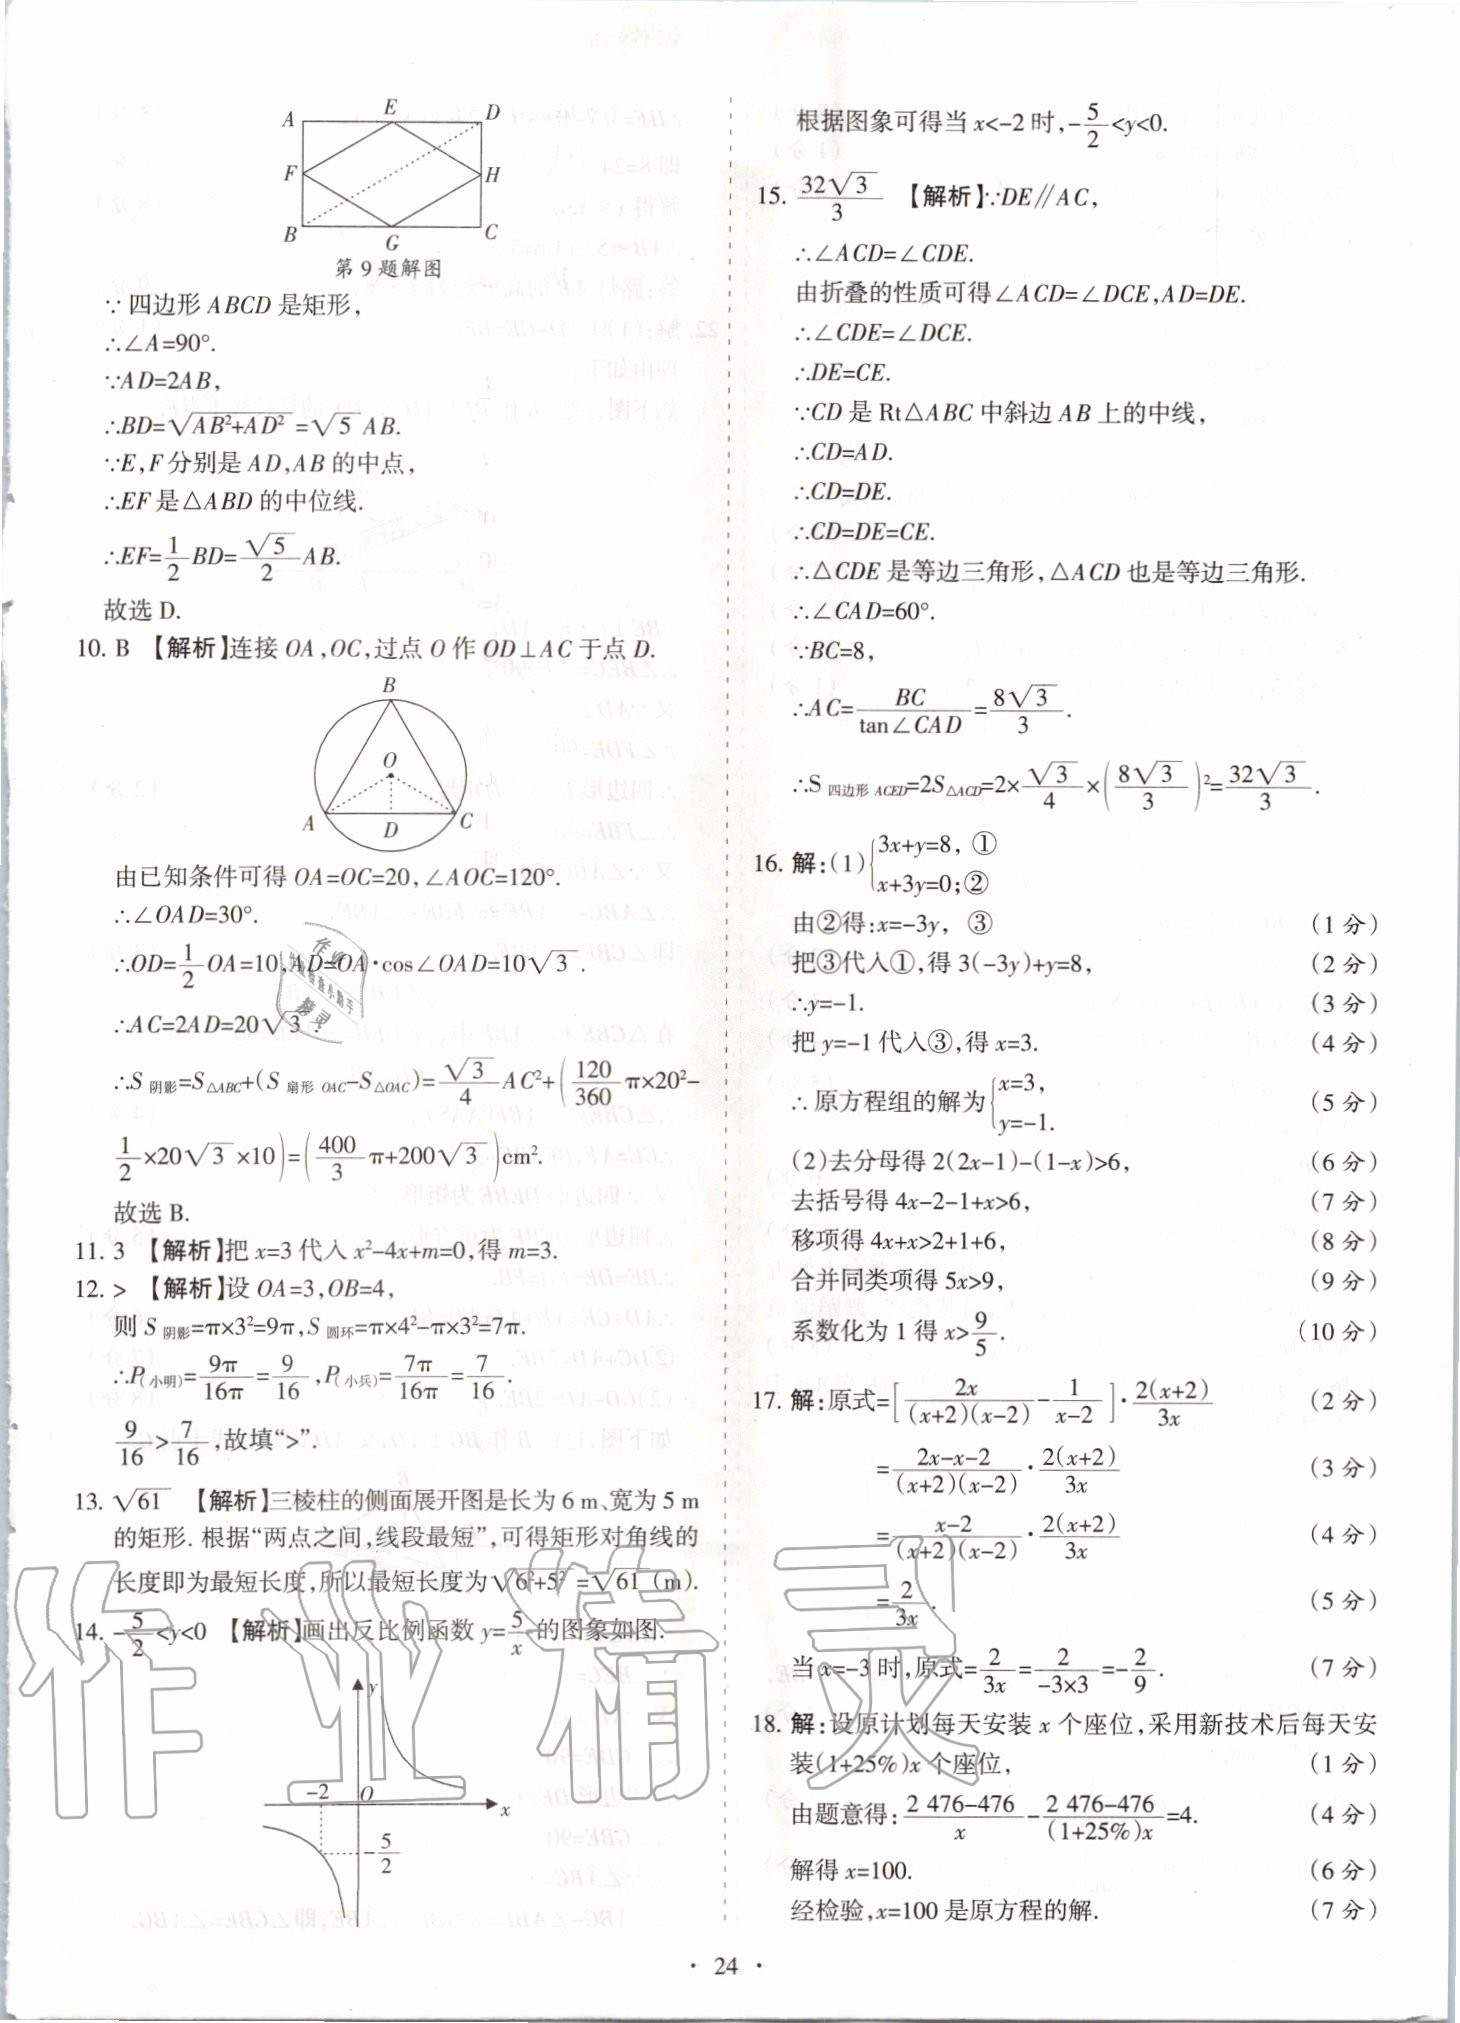 A E D
F H
B G C
第9题解图
∵四边形ABCD是矩形,
∴∠A=90°.
∵AD=2AB,
∴BD=√(AB²+AD²)=√5 AB.
∵E,F分别是AD,AB的中点,
∴EF是△ABD的中位线.
∴EF=1/2 BD=√5/2 AB.
故选D.
10. B 【解析】连接OA,OC,过点O作OD⊥AC于点D.
B
O
A D C
由已知条件可得OA=OC=20,∠AOC=120°.
∴∠OAD=30°.
∴OD=1/2 OA=10,AD=OA·cos∠OAD=10√3.
∴AC=2AD=20√3.
∴S阴影=S△ABC+(S扇形OAC-S△OAC)=√3/4 AC²+(120/360 π×20²-
1/2×20√3×10)=(400/3 π+200√3)cm².
故选B.
11. 3 【解析】把x=3代入x²-4x+m=0,得m=3.
12. > 【解析】设OA=3,OB=4,
则S阴影=π×3²=9π,S圆环=π×4²-π×3²=7π.
∴P(小明)=9π/16π=9/16,P(小兵)=7π/16π=7/16.
9/16>7/16,故填“>”.
13. √61 【解析】三棱柱的侧面展开图是长为6 m、宽为5 m
的矩形. 根据“两点之间,线段最短”,可得矩形对角线的
长度即为最短长度,所以最短长度为√(6²+5²)=√61 (m).
14. -5/2<y<0 【解析】画出反比例函数y=5/x的图象如图.
y
-2 O x
-5/2
根据图象可得当x<-2时,-5/2<y<0.
15. 32√3/3 【解析】∵DE∥AC,
∴∠ACD=∠CDE.
由折叠的性质可得∠ACD=∠DCE,AD=DE.
∴∠CDE=∠DCE.
∴DE=CE.
∵CD是Rt△ABC中斜边AB上的中线,
∴CD=AD.
∴CD=DE.
∴CD=DE=CE.
∴△CDE是等边三角形,△ACD也是等边三角形.
∴∠CAD=60°.
∵BC=8,
∴AC=BC/tan∠CAD=8√3/3.
∴S四边形ACED=2S△ACD=2×√3/4×(8√3/3)²=32√3/3.
16. 解:(1){3x+y=8, ①
x+3y=0;②
由②得:x=-3y, ③ (1分)
把③代入①,得3(-3y)+y=8, (2分)
∴y=-1. (3分)
把y=-1代入③,得x=3. (4分)
∴原方程组的解为{x=3, y=-1. (5分)
(2)去分母得2(2x-1)-(1-x)>6, (6分)
去括号得4x-2-1+x>6, (7分)
移项得4x+x>2+1+6, (8分)
合并同类项得5x>9, (9分)
系数化为1得x>9/5. (10分)
17. 解:原式=[2x/(x+2)(x-2)-1/(x-2)]·2(x+2)/3x (2分)
=(2x-x-2)/(x+2)(x-2)·2(x+2)/3x (3分)
=(x-2)/(x+2)(x-2)·2(x+2)/3x (4分)
=2/3x. (5分)
当x=-3时,原式=2/3x=2/(-3×3)=-2/9. (7分)
18. 解:设原计划每天安装x个座位,采用新技术后每天安
装(1+25%)x个座位, (1分)
由题意得:(2 476-476)/x-(2 476-476)/(1+25%)x=4. (4分)
解得x=100. (6分)
经检验,x=100是原方程的解. (7分)
· 24 ·
作业精灵